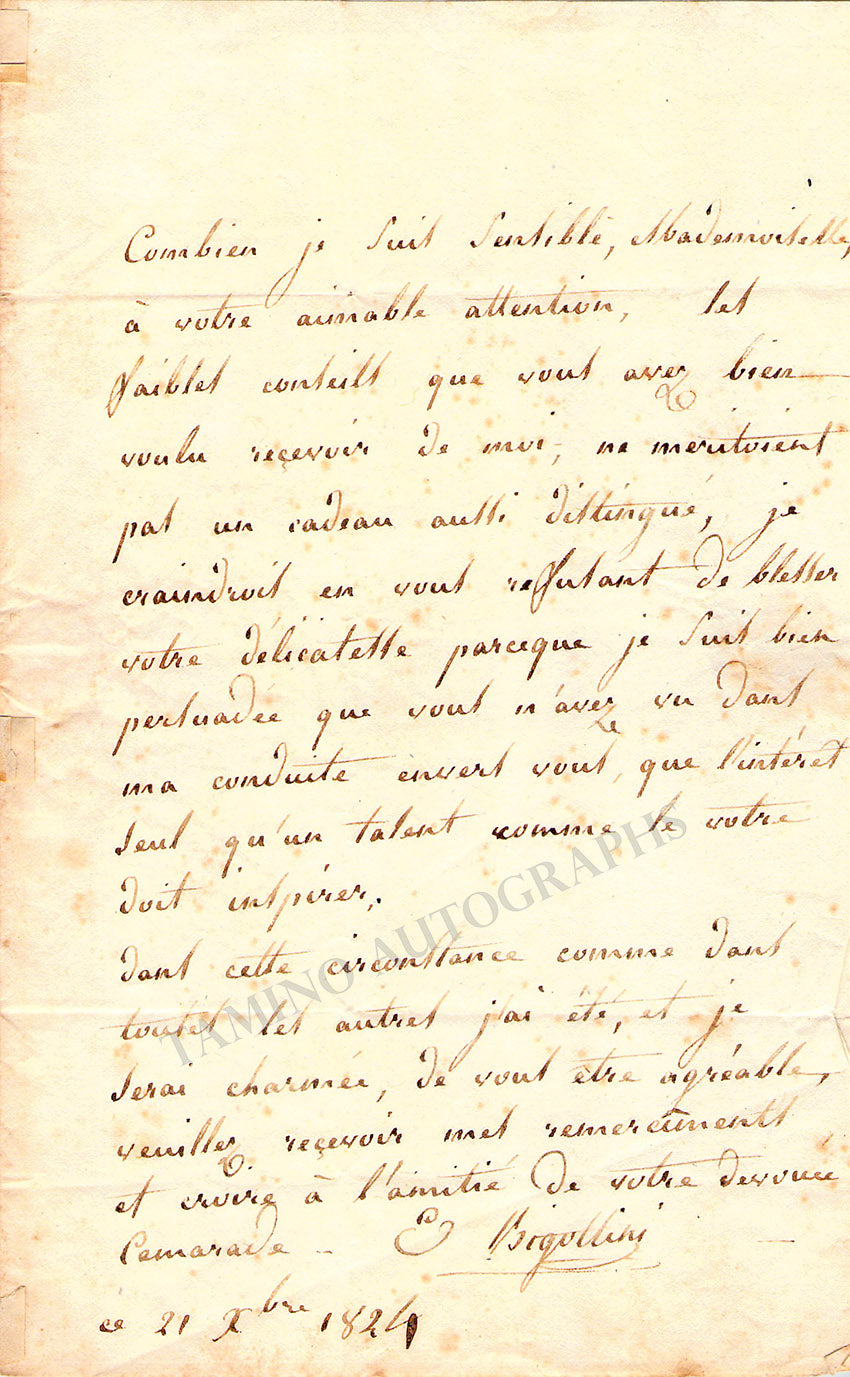 Combien je suis sensible, Mademoiselle,
à votre aimable attention, les
faibles conseils que vous avez bien
voulu reçevoir de moi, ne meritoient
pas un cadeau aussi distingué, je
craindrois en vous refusant de blesser
votre délicatesse parceque je suis bien
persuadée que vous n'avez vu dans
ma conduite envers vous, que l'intérêt
seul qu'un talent comme le votre
doit inspirer.
dans cette circonstance comme dans
toutes les autres j'ai été, et je
serai charmée, de vous être agréable,
veuillez reçevoir mes remercîments
et croire à l'amitié de votre devouée
Camarade - E Bigottini
ce 21 Xbre 1824
TAMINO AUTOGRAPHS